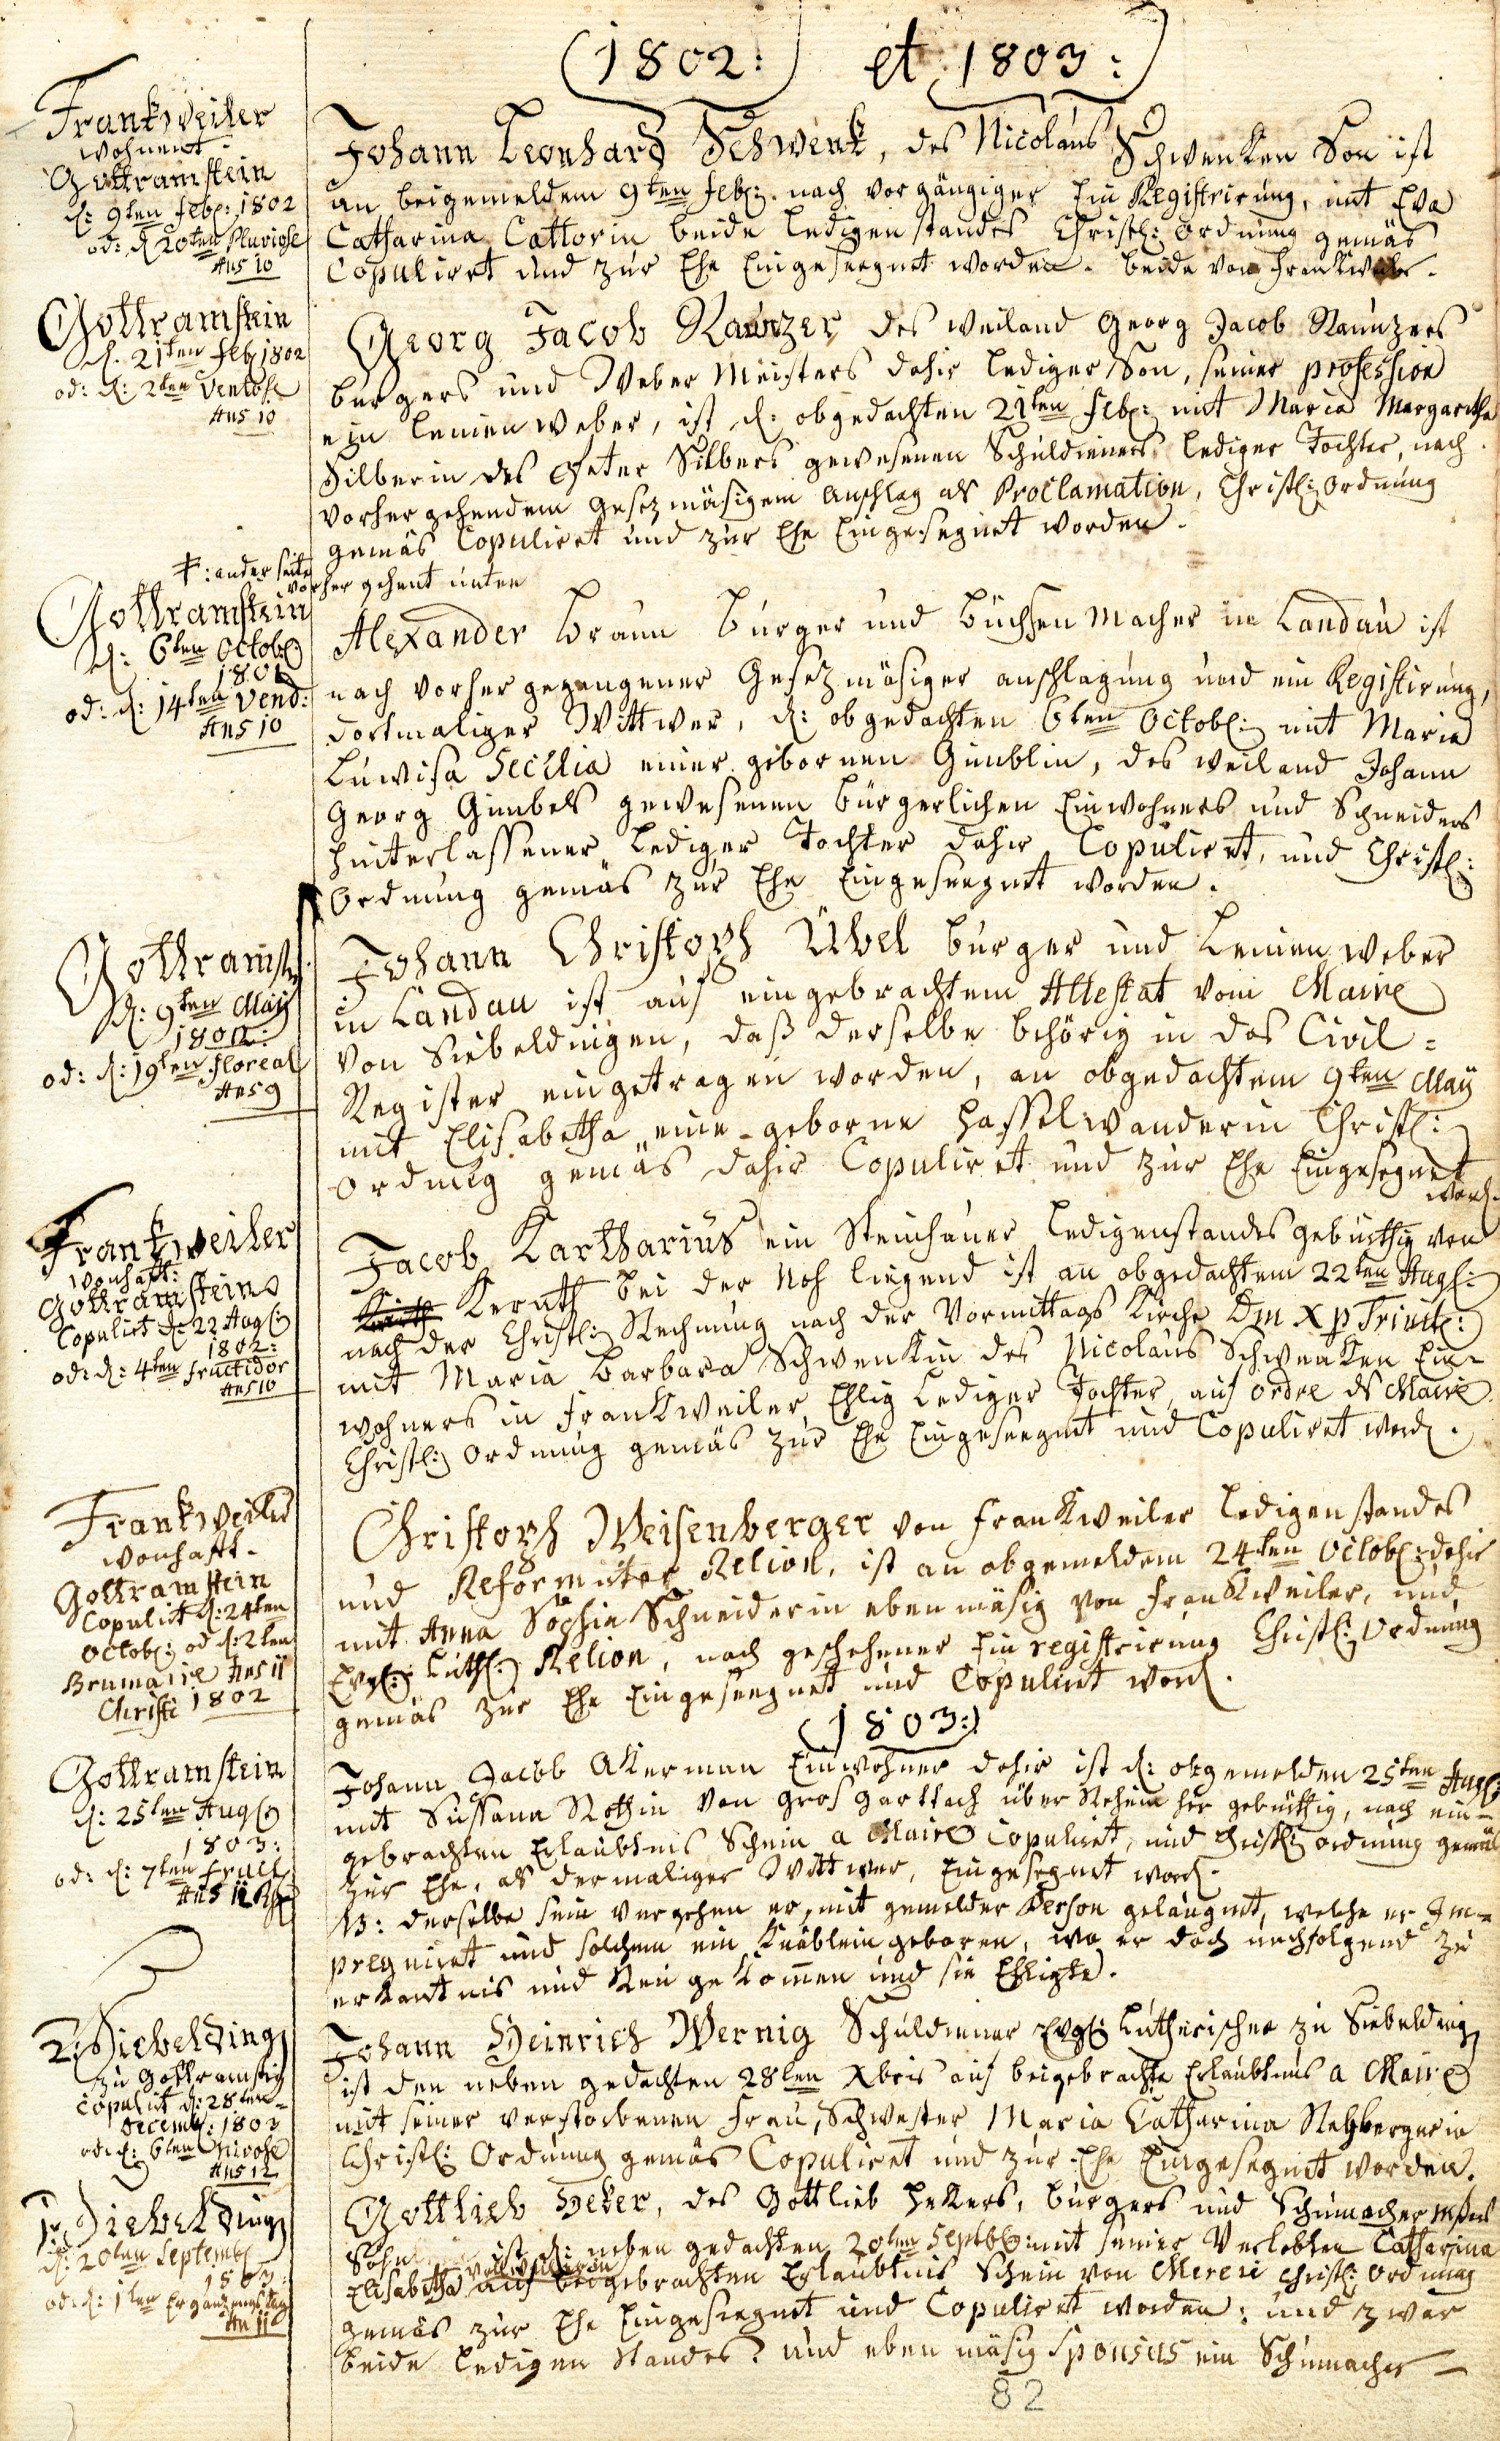 (1802:) et (1803:)
Frankweiler
wohnent.
Gottramstein
d: 9ten feb: 1802
od: d 20ten Pluviose
Ans 10
Johann Leonhard Schwenk, des Nicolaus Schwenken Son ist
an beigemeldem 9ten feb: nach vorgängiger Ein Registrirung, mit Eva
Catharina Cattorin beide ledigen standes Christl: Ordnung gemäs
Copuliret und zur Ehe Eingeseegnet worden. beide von Frankweiler.
Gottramstein
d. 21ten feb 1802
od: d: 2ten Ventose
Ans 10
Georg Jacob Raunzer des weiland Georg Jacob Raunzers
burgers und Weber Meisters dahir lediger Son, seiner profession
ein leinen weber, ist d: obgedachten 21ten feb: mit Maria Margaretha
Silberin des Peter Silbers gewesenen Schuldieners lediger Tochter, nach
vorher gehendem gesezmäsigem anschlag als Proclamation, Christl: Ordnung
gemäs Copuliret und zur Ehe Eingesegnet worden.
‡: ander seite
vorher gehent unten
Gottramstein
d: 6ten Octob:
1801
od: d: 14ten Vend:
Ans 10
Alexander Braun burger und büchsen Macher in Landau ist
nach vorher gegangener Gesezmäsiger anschlagung und ein Registirung,
dortmaliger Wittwer, d: obgedachten 6ten Octob: mit Maria
Luwisa Secilia einer gebornen Gimblin, des weiland Johann
Georg Gimbels gewesenen bürgerlichen Einwohners und Schneiders
hinterlassener lediger Tochter dahir Copuliret, und Christl:
Ordnung gemäs zur Ehe Eingeseegnet worden.
Gottramst
d: 9ten Maÿ
1802:
od: d: 19ten floreal
Ans 9
Johann Christoph Übel burger und Leinen weber
in Landau ist auf eingebrachtem Attestat vom Maire
von Siebeldingen, daß derselbe behörig in das Civil=
Register eingetragen worden, an obgedachtem 9ten Maÿ
mit Elisabetha eine geborne Hasselwanderin Christl:
Ordnug gemäs dahir Copuliret und zur Ehe Eingesegnet
word.
Frankweiler
wonhaft:
Gottramstein
Copulirt d: 22 Aug:
1802:
od: d: 4ten fructidor
Ans 10
Jacob Kartharius ein Steinhauer ledigenstandes gebürthig von
Kernth bei der Noh liegend ist an obgedachtem 22ten Aug:
nach der Christl: Rechnung nach der Vormittags Kirche Dm X p Trinit:
mit Maria Barbara Schwenkin des Nicolaus Schwenken Ein=
wohners in Frankweiler Ehlig lediger Tochter, auf ordre ds Maire
Christl: Ordnung gemäs zur Ehe Eingeseegnet und Copuliret word.
Frankweiler
wonhafft.
Gottramstein
Copulirt d: 24ten
Octob: od d: 2ten
Brumaire Ans 11
Christi 1802
Christoph Weisenberger von Frankweiler ledigen standes
und Reformirter Relion, ist an obgemeldem 24ten Octob: dahir
mit Anna Sophia Schneiderin ebenmäsig von Frankweiler, und
Evgl: Luth: Relion, nach geschehener Ein registrirung Christl: Ordnung
gemäs zur Ehe Eingeseegnet und Copuliret word.
(1803:)
Gottramstein
d: 25ten Aug
1803:
od: d: 7ten fruct
Ans 11
Johann Jacob Akerman Einwohner dahir ist d: obgemelden 25ten Aug:
mit Sussana Rothin von gros gartach über Rhein her gebürthig, nach ein=
gebrachten Erlaubtnis Schein a Maire Copuliret, und Christl: ordnung gemäs
zur Ehe, als dermaliger Wittwer, Eingesegnet word.
NB: derselbe sein vergehen er mit gemelder Person geläugnet, welche er Im=
pregniret und solchem ein Knäblein geboren, wo er doch nachfolgend zu
erkantnis und Reu gekom̄en und sie Ehligte.
2. Siebelding
zu Gottramstein
Copulirt d: 28ten
Decemb: 1803
od: d: 6ten Nivose
Ans 12
Johann Heinrich Wernig Schuldiener Evgl: Lutherischer zu Siebelding
ist den neben gedachten 28ten Xbris auf beigebrachte Erlaubtnus a Maire
mit seiner verstorbenen Frau, Schwester Maria Catharina Rehbergerin
Christl: Ordnung gemäs Copuliret und zur Ehe Eingesegnet worden.
1. Siebelding
d: 20ten Septemb
1803
od: d: 1ten Ergänzungstag
An 11
Gottlieb Heker, des Gottlieb Hekers, burgers und Schumacher
Sohn ist d: neben gedachten 20ten Septb: mit seiner Verlobten Catharina
Elisabetha auf beigebrachten Erlaubtnis Schein von Merei Christl: Ordnung
gemäs zur Ehe Eingeseegnet und Copuliret worden: und zwar
beide ledigen Standes: und eben mäsig Sponsus ein Schumacher
82